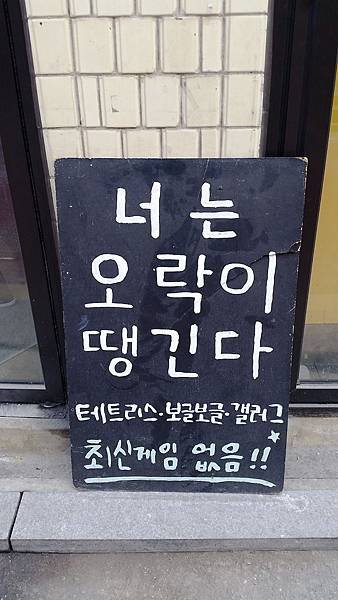 너는
오락이
땡긴다
테트리스·보글보글·갤러그
최신게임 없음!!